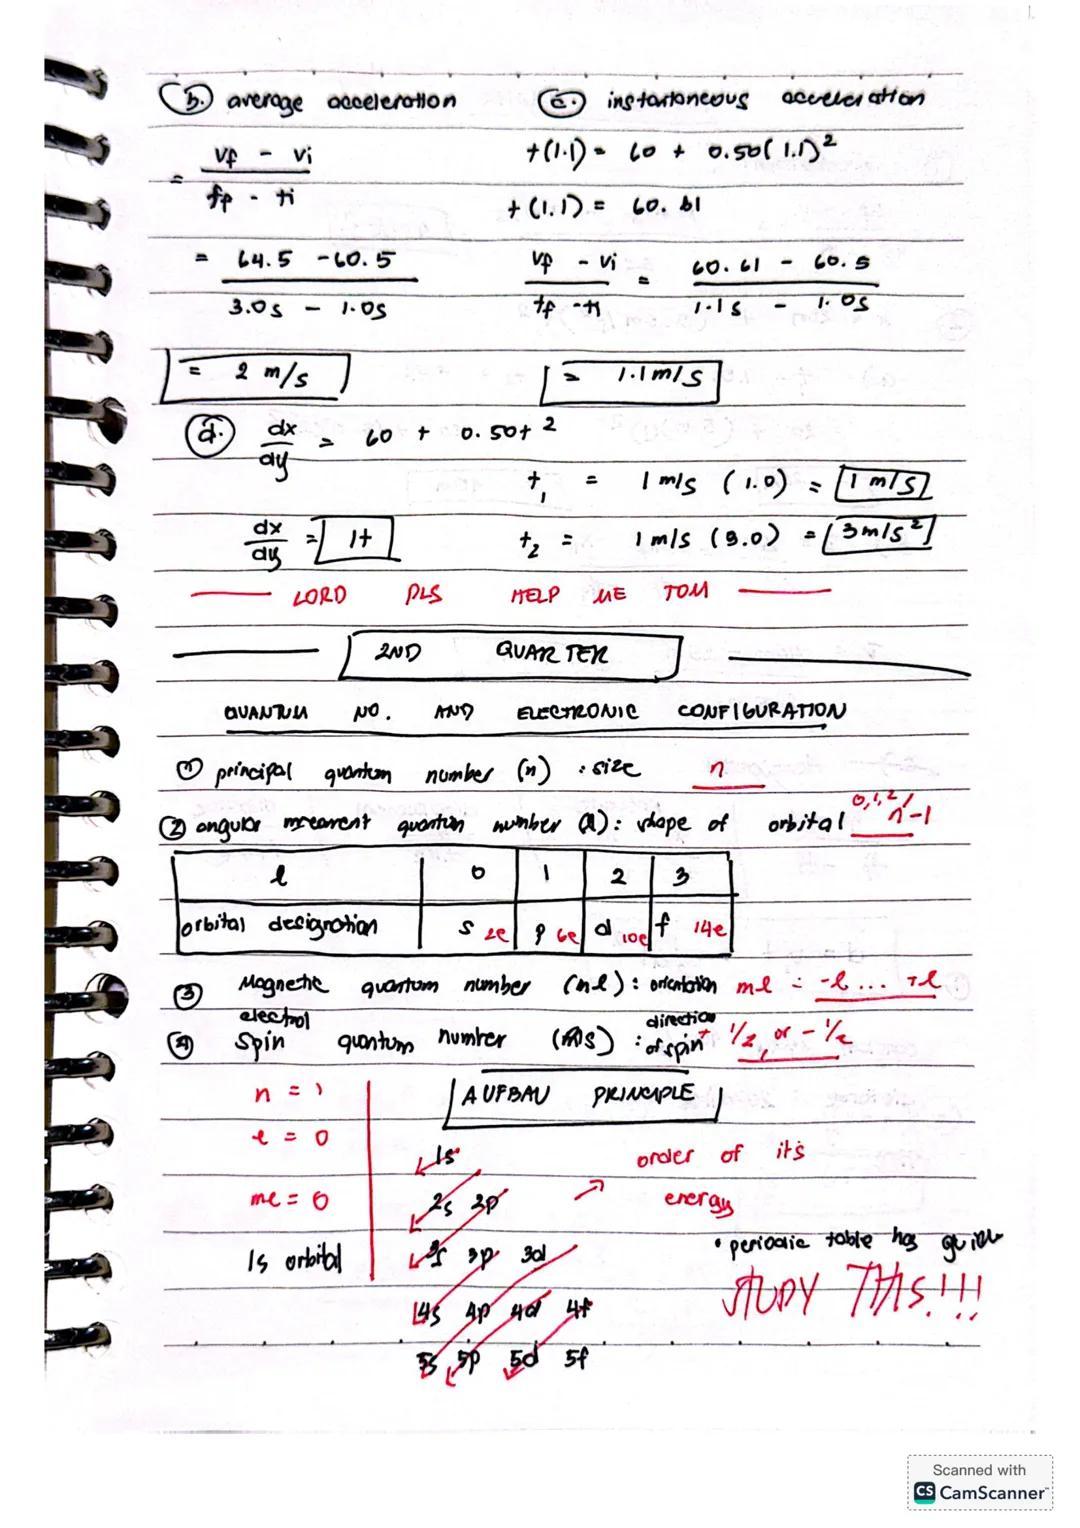 b. average acceleration
= vf - vi / tf - ti
= 64.5 - 60.5 / 3.0s - 1.0s
= 2 m/s
c. instantaneous acceleration
t(1.1) = 60 + 0.50(1.1)²
t(1.1) = 60.61
vf - vi / tf - ti = 60.61 - 60.5 / 1.1s - 1.0s
= 1.1m/s
d. dx/dy = 60 + 0.50t²
t₁ = 1 m/s (1.0) = 1 m/s
dx/dy = 1t
t₂ = 1 m/s (3.0) = 3m/s²
LORD PLS HELP ME TOM
2ND QUARTER
QUANTUM NO. AND ELECTRONIC CONFIGURATION
① principal quantum number (n) : size n
② angular quantum number (l) : shape of orbital 0,1,2/ n-1
l 0 1 2 3
orbital designation s 2e p 6e d 10e f 14e
③ Magnetic quantum number (ml) : orientation ml = -l... +l
④ electrol Spin quantum number (ms) : direction of spin + 1/2, or - 1/2
n = 1
l = 0
ml = 0
1s orbital
AUFBAU PRINCIPLE
1s
2s 2p
3s 3p 3d
4s 4p 4d 4f
5s 5p 5d 5f
order of it's
energy
• periodic table has guide
STUDY THIS!!!
Scanned with
CS CamScanner